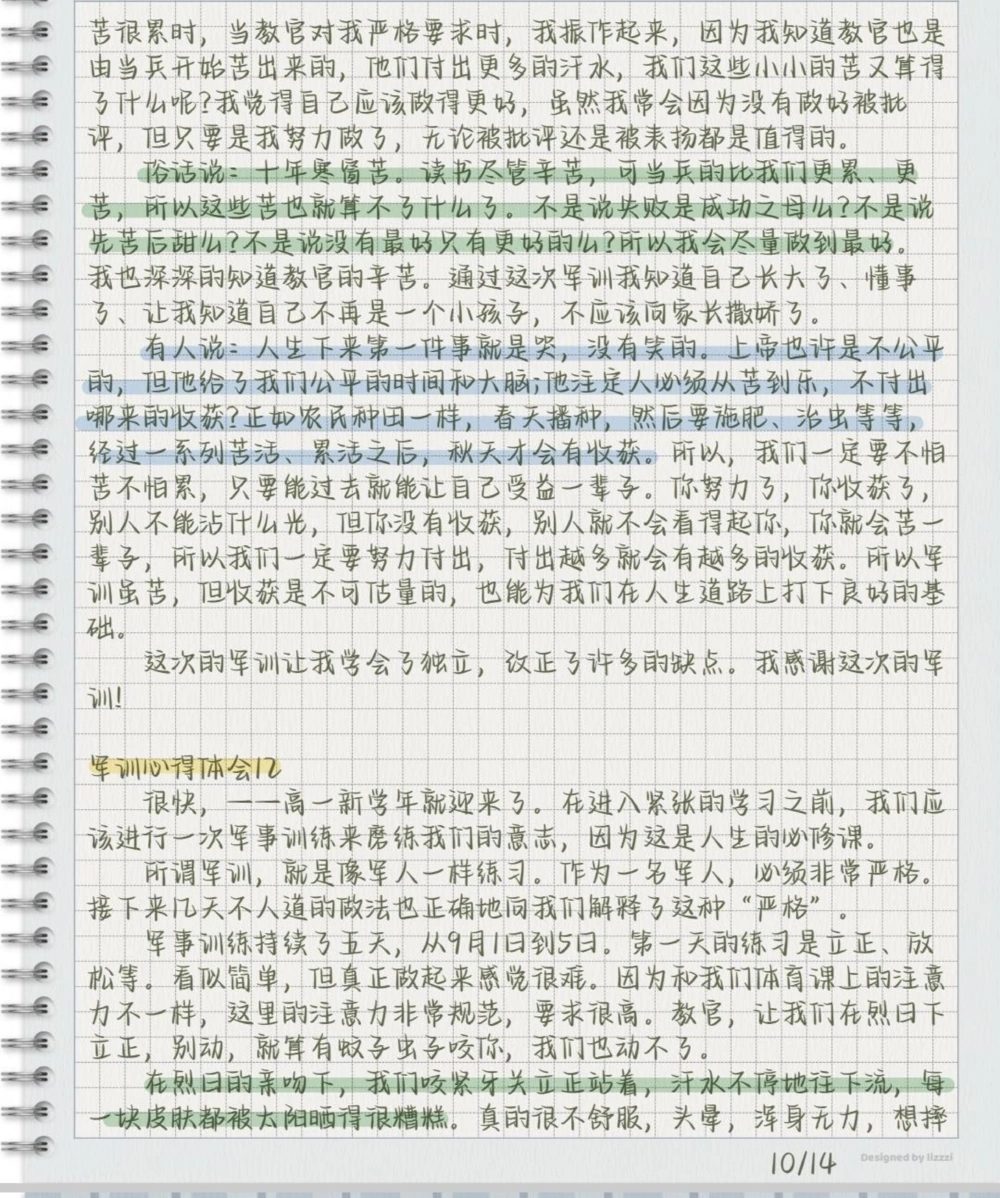 苦很累时，当教官对我严格要求时，我振作起来，因为我知道教官也是
由当兵开始苦出来的，他们付出更多的汗水，我们这些小小的苦又算得
了什么呢?我觉得自己应该做得更好，虽然我常会因为没有做好被批
评，但只要是我努力做了，无论被批评还是被表扬都是值得的。
俗话说：十年寒窗苦。读书尽管辛苦，可当兵的比我们更累、更
苦，所以这些苦也就算不了什么了。不是说失败是成功之母么?不是说
先苦后甜么?不是说没有最好只有更好的么?所以我会尽量做到最好。
我也深深的知道教官的辛苦。通过这次军训我知道自己长大了、懂事
了、让我知道自己不再是一个小孩子，不应该向家长撒娇了。
有人说：人生下来第一件事就是哭，没有笑的。上帝也许是不公平
的，但他给了我们公平的时间和大脑;他注定人必须从苦到乐，不付出
哪来的收获?正如农民种田一样，春天播种，然后要施肥、治虫等等，
经过一系列苦活、累活之后，秋天才会有收获。所以，我们一定要不怕
苦不怕累，只要能过去就能让自己受益一辈子。你努力了，你收获了，
别人不能沾什么光，但你没有收获，别人就不会看得起你，你就会苦一
辈子，所以我们一定要努力付出，付出越多就会有越多的收获。所以军
训虽苦，但收获是不可估量的，也能为我们在人生道路上打下良好的基
础。
这次的军训让我学会了独立，改正了许多的缺点。我感谢这次的军
训!
军训心得体会12
很快，一一高一新学年就迎来了。在进入紧张的学习之前，我们应
该进行一次军事训练来磨练我们的意志，因为这是人生的必修课。
所谓军训，就是像军人一样练习。作为一名军人，必须非常严格。
接下来几天不人道的做法也正确地向我们解释了这种“严格”。
军事训练持续了五天，从9月1日到5日。第一天的练习是立正、放
松等。看似简单，但真正做起来感觉很难。因为和我们体育课上的注意
力不一样，这里的注意力非常规范，要求很高。教官，让我们在烈日下
立正，别动，就算有蚊子虫子咬你，我们也动不了。
在烈日的亲吻下，我们咬紧牙关立正站着，汗水不停地往下流，每
一块皮肤都被太阳晒得很糟糕。真的很不舒服，头晕，浑身无力，想摔
10/14
Designed by lizzzi